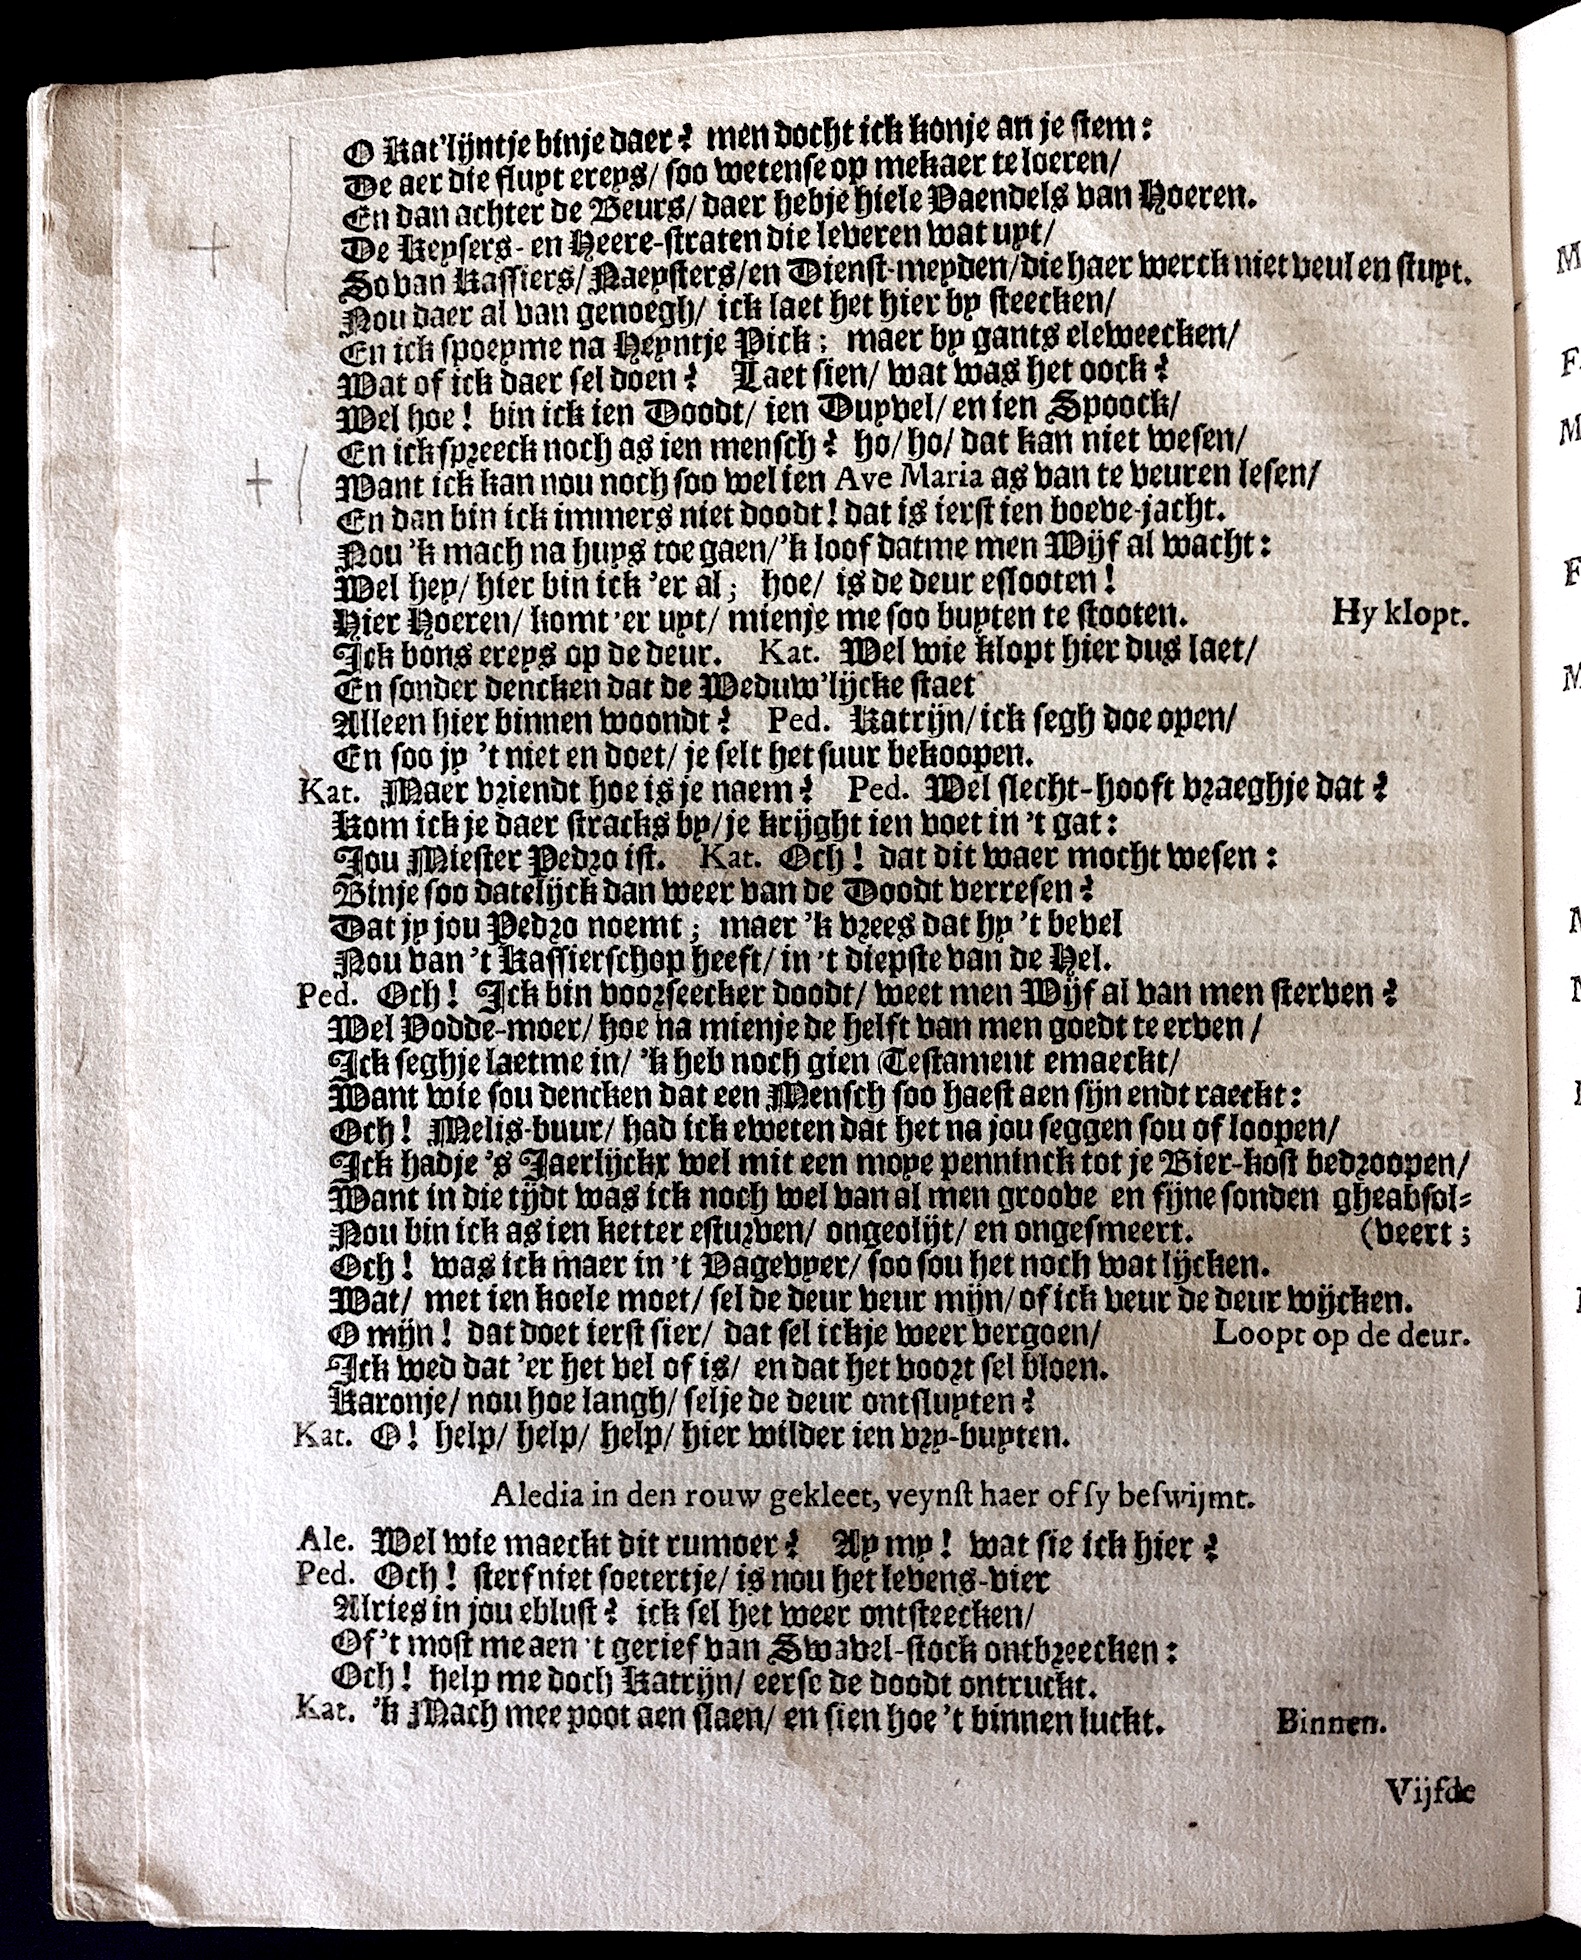 O Kat'lijntje binje daer? men docht ick konje an je stem:
De aer die sluyt ereys/ soo wetense op mekaer te loeren/
En dan achter de Beurs/ daer hebje hiele Vaendels van Hoeren.
De Keysers- en Heere-straten die leveren wat uyt/
So van Kassiers/ Naeysters/ en Dienst-meyden/ die haer werck niet veul en stuyt.
Nou daer al van genoegh/ ick laet het hier by steecken/
En ick spoeyme na Heyntje Pick; maer by gants eleweecken/
Wat of ick daer sel doen? Laet sien/ wat was het oock?
Wel hoe! bin ick ien Doodt/ ien Duyvel/ en ien Spoock/
En ick spreeck noch as ien mensch? ho/ ho/ dat kan niet wesen/
Want ick kan nou noch soo wel ien Ave Maria as van te veuren lesen/
En dan bin ick immers niet doodt! dat is ierst ien boeve-jacht.
Nou 'k mach na huys toe gaen/ 'k loof datme men Wijf al wacht:
Wel hey/ hier bin ick 'er al; hoe/ is de deur eslooten!
Hier Hoeren/ komt 'er uyt/ mienje me soo buyten te stooten. Hy klopt.
Ick bons ereys op de deur. Kat. Wel wie klopt hier dus laet/
En sonder dencken dat de Weduw'lijcke staet
Alleen hier binnen woondt? Ped. Katrijn/ ick segh doe open/
En soo jy 't niet en doet/ je selt het suur bekoopen.
Kat. Maer vriendt hoe is je naem? Ped. Wel slecht-hooft vraeghje dat?
Kom ick je daer stracks by/ je krijght ien voet in 't gat:
Jou Miester Pedro ist. Kat. Och! dat dit waer mocht wesen:
Binje soo datelijck dan weer van de Doodt verresen?
Dat jy jou Pedro noemt; maer 'k vrees dat hy 't bevel
Nou van 't Kassierschop heeft/ in 't diepste van de Hel.
Ped. Och! Ick bin voorseecker doodt/ weet men Wijf al van men sterven?
Wel Vodde-moer/ hoe na mienje de helft van men goedt te erven/
Ick seghje laetme in/ 'k heb noch gien Testament emaeckt/
Want wie sou dencken dat een Mensch soo haest aen sijn endt raeckt:
Och! Melis-buur/ had ick eweten dat het na jou seggen sou of loopen/
Ick hadje 's Jaerlijckx wel mit een moye penninck tot je Bier-kost bedroopen/
Want in die tijdt was ick noch wel van al men groove en fijne sonden gheabsol-
Nou bin ick as ien ketter esturven/ ongeolijt/ en ongesmeert. (veert;
Och! was ick maer in 't Vagevyer/ soo sou het noch wat lijcken.
Wat/ met ien koele moet/ sel de deur veur mijn/ of ick veur de deur wijcken.
O mijn! dat doet ierst sier/ dat sel ickje weer vergoen/ Loopt op de deur.
Ick wed dat 'er het vel of is/ en dat het voort sel bloen.
Karonje/ nou hoe langh/ selje de deur ontsluyten?
Kat. O! help/ help/ help/ hier wilder ien vry-buyten.
Aledia in den rouw gekleet, veynst haer of sy beswijmt.
Ale. Wel wie maeckt dit rumoer? Ay my! wat sie ick hier?
Ped. Och! sterf niet soetertje/ is nou het levens-vier
Alries in jou eblust? ick sel het weer ontsteecken/
Of 't most me aen 't gerief van Swavel-stock ontbreecken:
Och! help me doch Katrijn/ eerse de doodt ontruckt.
Kat. 'k Mach mee poot aen slaen/ en sien hoe 't binnen luckt. Binnen.
Vijfde